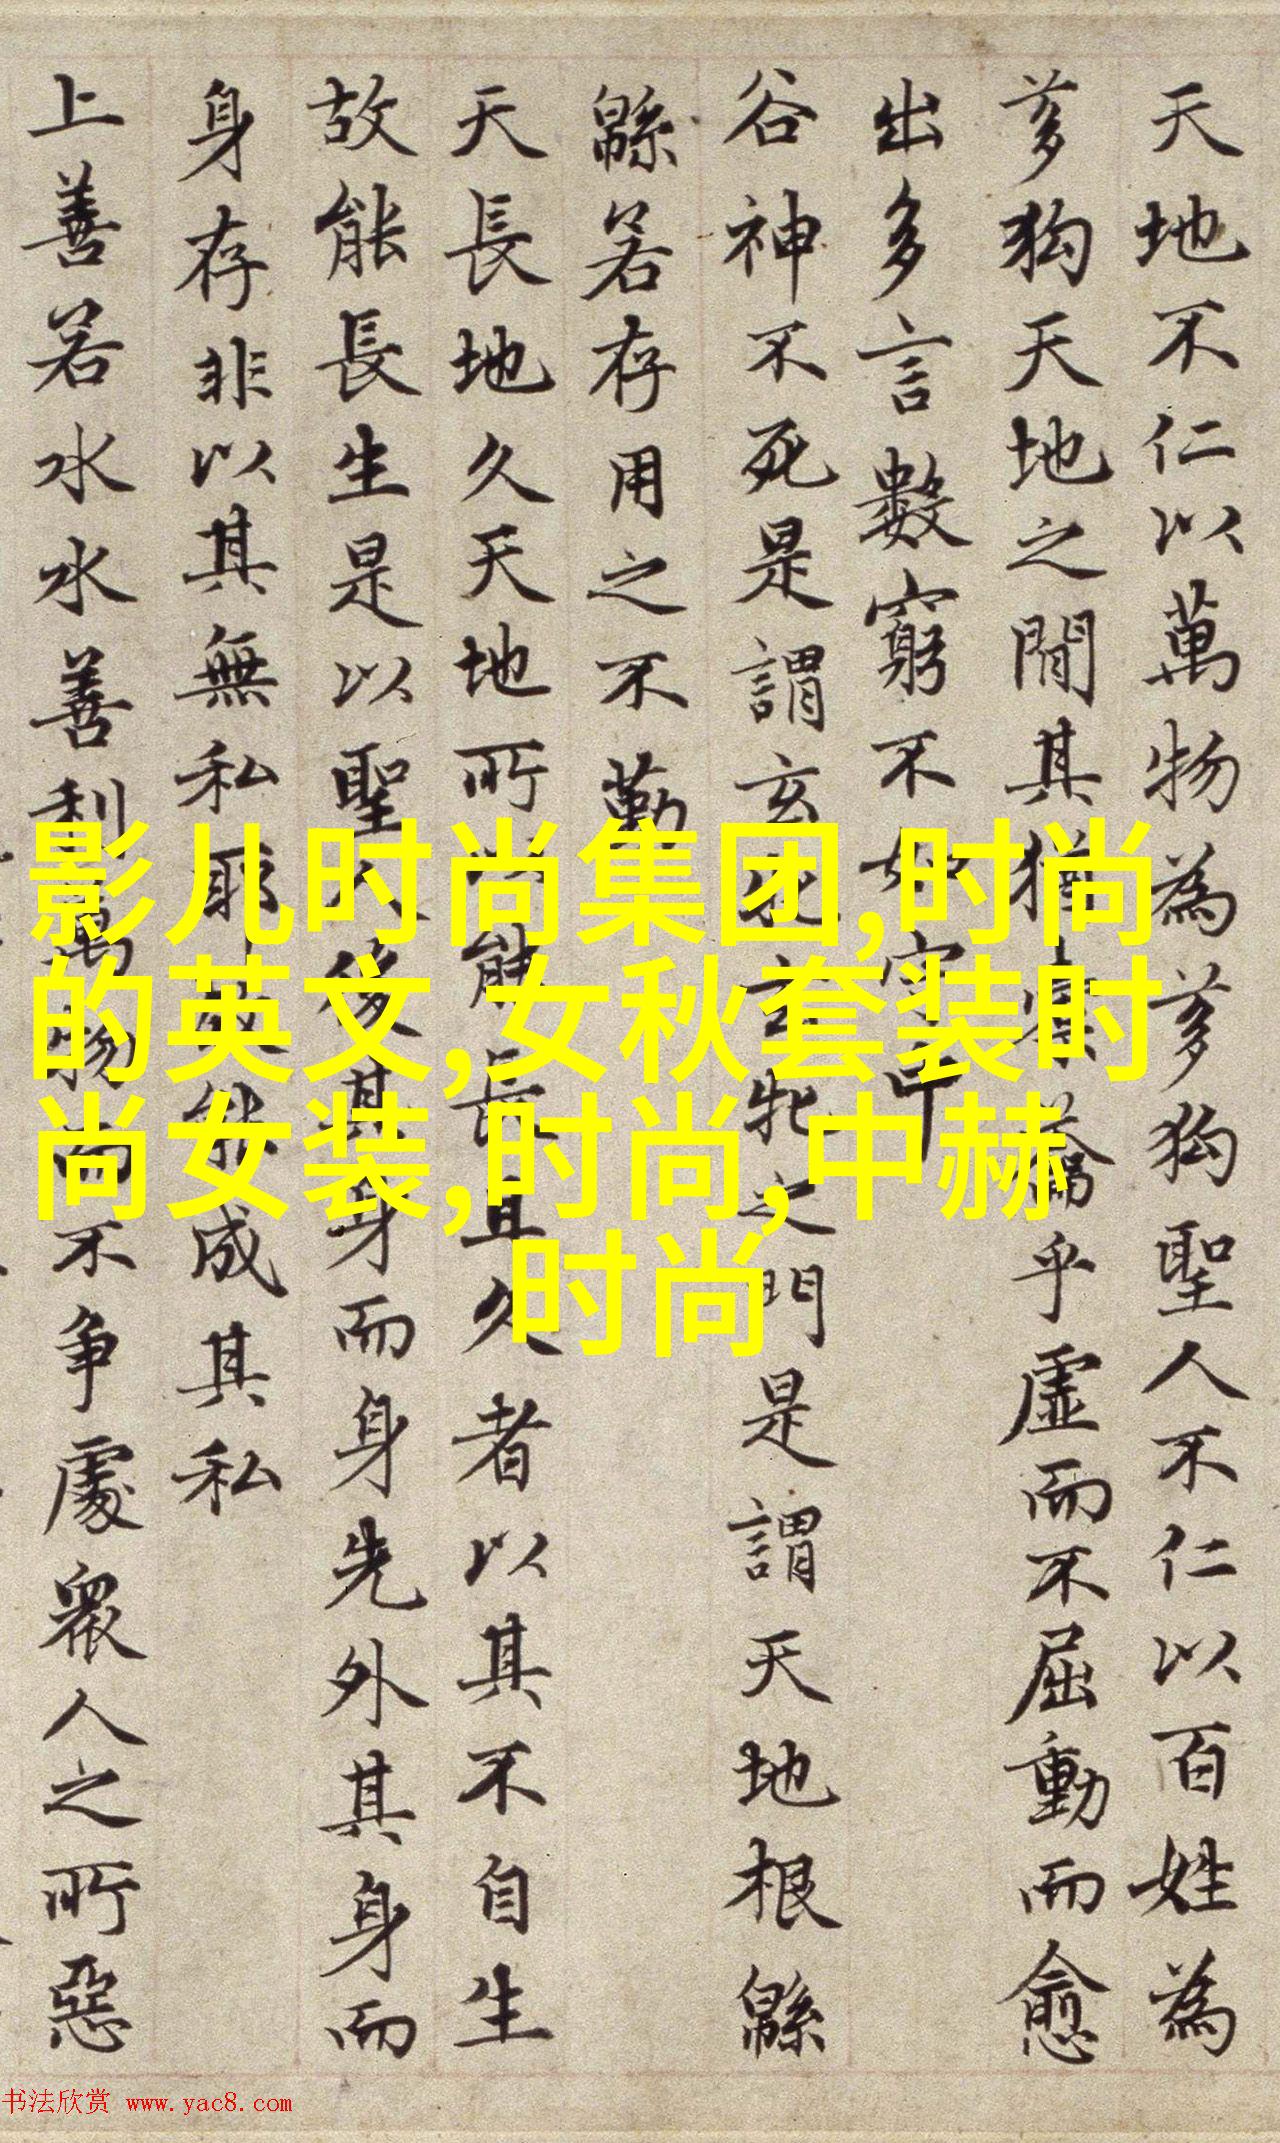 天地不仁以萬物為芻狗聖人不仁以百姓為
芻狗天地之間其猶橐籥乎虛而不屈動而愈
出多言數窮不如守中
谷神不死是謂玄牝玄牝之門是謂天地根緜
緜若存用之不勤
天長地久天地所以能長且久者以其不自生
故能長生是以聖人後其身而身先外其身而
身存非以其無私耶故能成其私
上善若水水善利萬物而不争處衆人之所惡
影儿时尚集团,时尚
的英文,女秋套装时
尚女装,时尚,中赫
时尚
书法欣赏 www.yac8.com